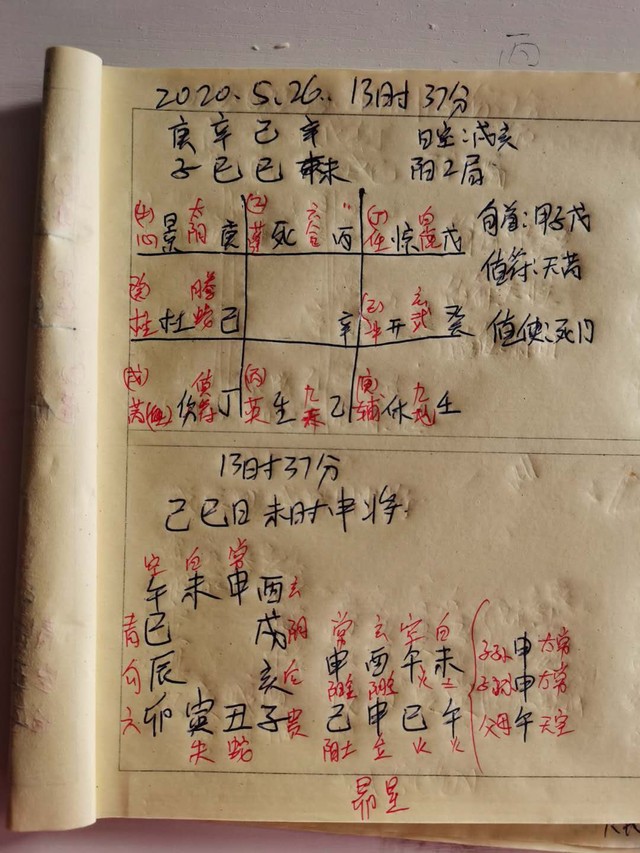 2020.5.26. 13时37分
庚 辛 己 辛 日空:戌亥
子 巳 巳 未 阳二局
心 景 太阴 庚 死 六合 丙 任 惊 白虎 戊 旬首:甲子戊
值符:天芮
柱 杜 腾蛇 己 辛 开 玄武 癸 值使:死门
(戊) 芮 伤 值符 丁 (丙) 英 生 九天 乙 (庚) 辅 休 九地 壬
13时37分
己巳日 未时 申将
空 白 常
午 未 申 酉 玄
青 巳 戌 阴
勾 辰 亥 后
六 卯 寅 丑 子 贵
朱 蛇
常 玄 空 白
申 酉 午 未
火 土
己 申 巳 午
阴土 金 火 火
子孙 申 太常
子孙 申 太常
父母 午 天空
昴星